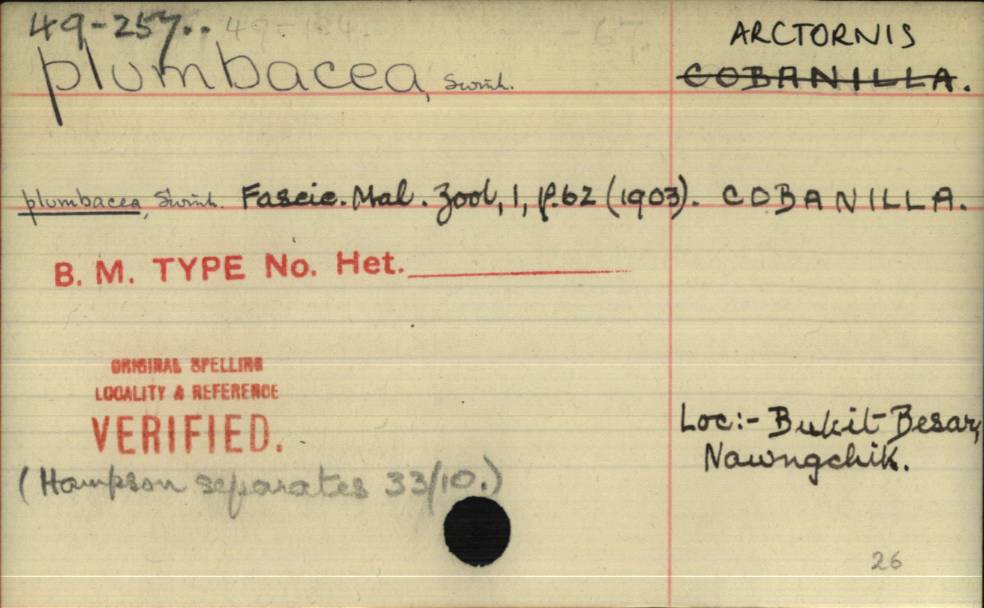 49-257.. 49-184.
-67.
plumbacea, Swinh.
ARCTORNIS
COBANILLA.
plumbacea, Swinh. Fascic. Mal. Zool, 1, p.62 (1903). COBANILLA.
B. M. TYPE No. Het.
ORIGINAL SPELLING
LOCALITY & REFERENCE
VERIFIED.
Loc:- Bukit Besar,
Nawngchik.
(Hampson separates 33/10.)
26